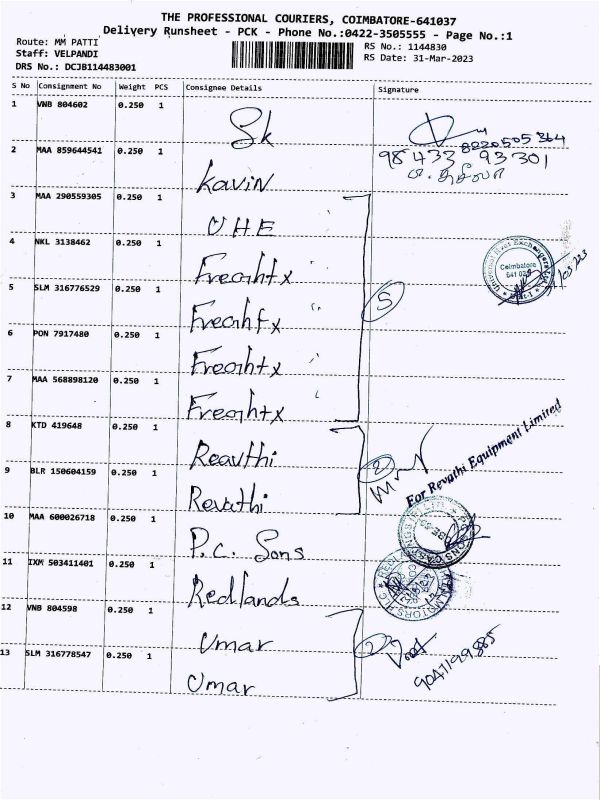 THE PROFESSIONAL COURIERS, COIMBATORE-641037
Delivery Runsheet - PCK - Phone No.:0422-3505555 - Page No.:1
Route: MM PATTI
RS No.: 1144830
Staff: VELPANDI
RS Date: 31-Mar-2023
DRS No.: DCJB114483001
S No Consignment No Weight PCS Consignee Details Signature
1 VNB 804602 0.250 1 Sk
8220505364
2 MAA 859644541 0.250 1 Kavin
98433 93301
3 MAA 290559305 0.250 1 UHE
4 NKL 3138462 0.250 1 Freahtx
Coimbatore
5 SLM 316776529 0.250 1 Freahtx
5
6 PON 7917480 0.250 1 Freahtx
7 MAA 568898120 0.250 1 Freahtx
8 KTD 419648 0.250 1 Reavthi
2
For Revathi Equipment Limited
9 BLR 150604159 0.250 1 Revathi
10 MAA 600026718 0.250 1 P.C. Sons
11 IXM 503411401 0.250 1 Redlands
12 VNB 804598 0.250 1 Umar
2
9047199885
13 SLM 316778547 0.250 1 Umar